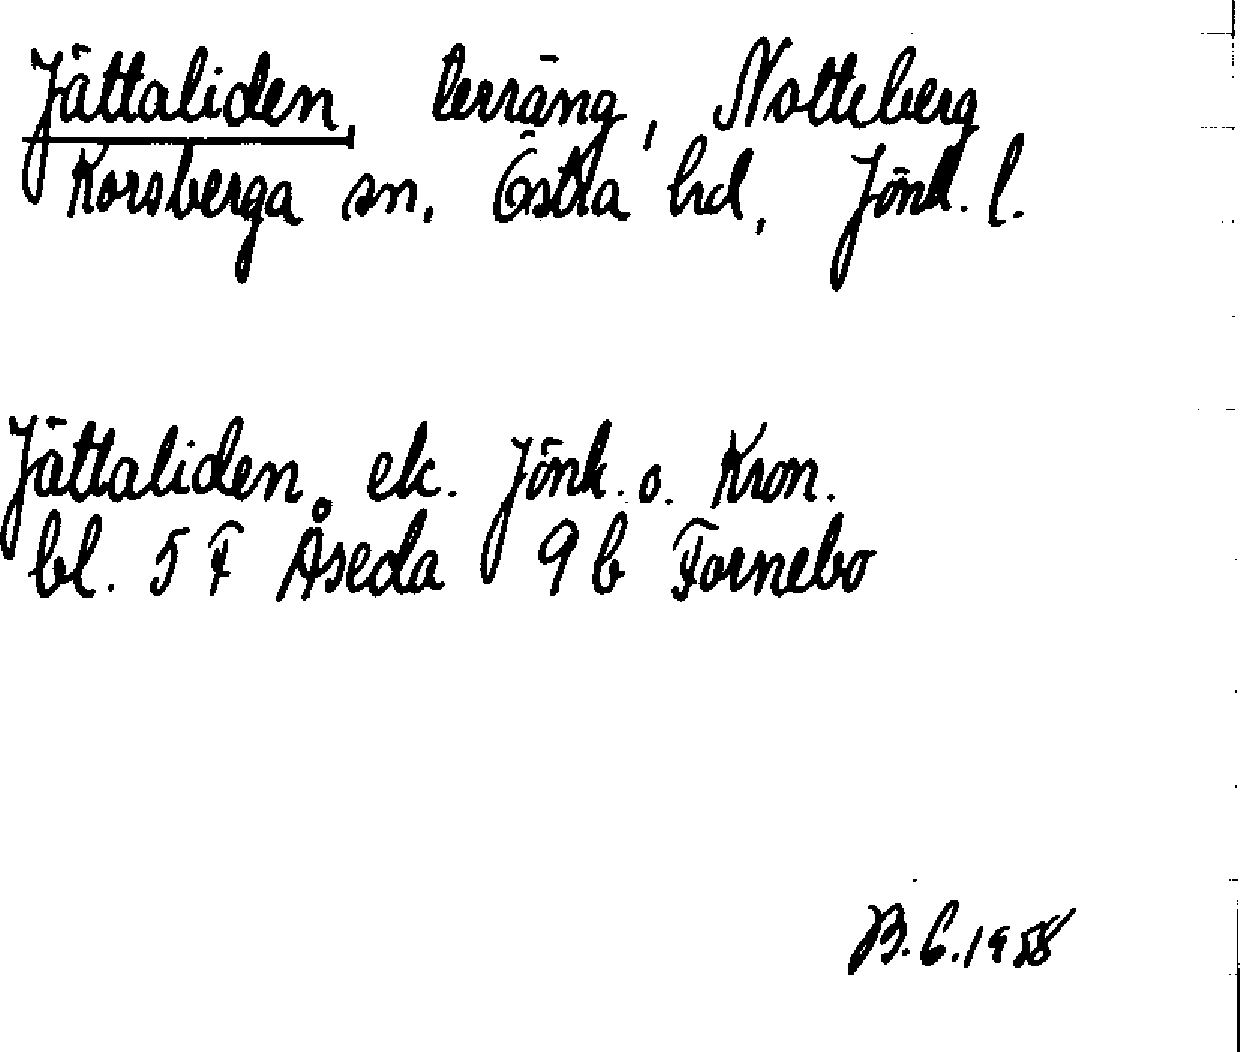 Jättaliden, terräng, Notteberg
Korsberga sn, Östra hd, Jönk. l.
Jättaliden. ek. Jönk. o. Kron.
bl. 5 F Åseda 9 b Fornebo
B.E.1958